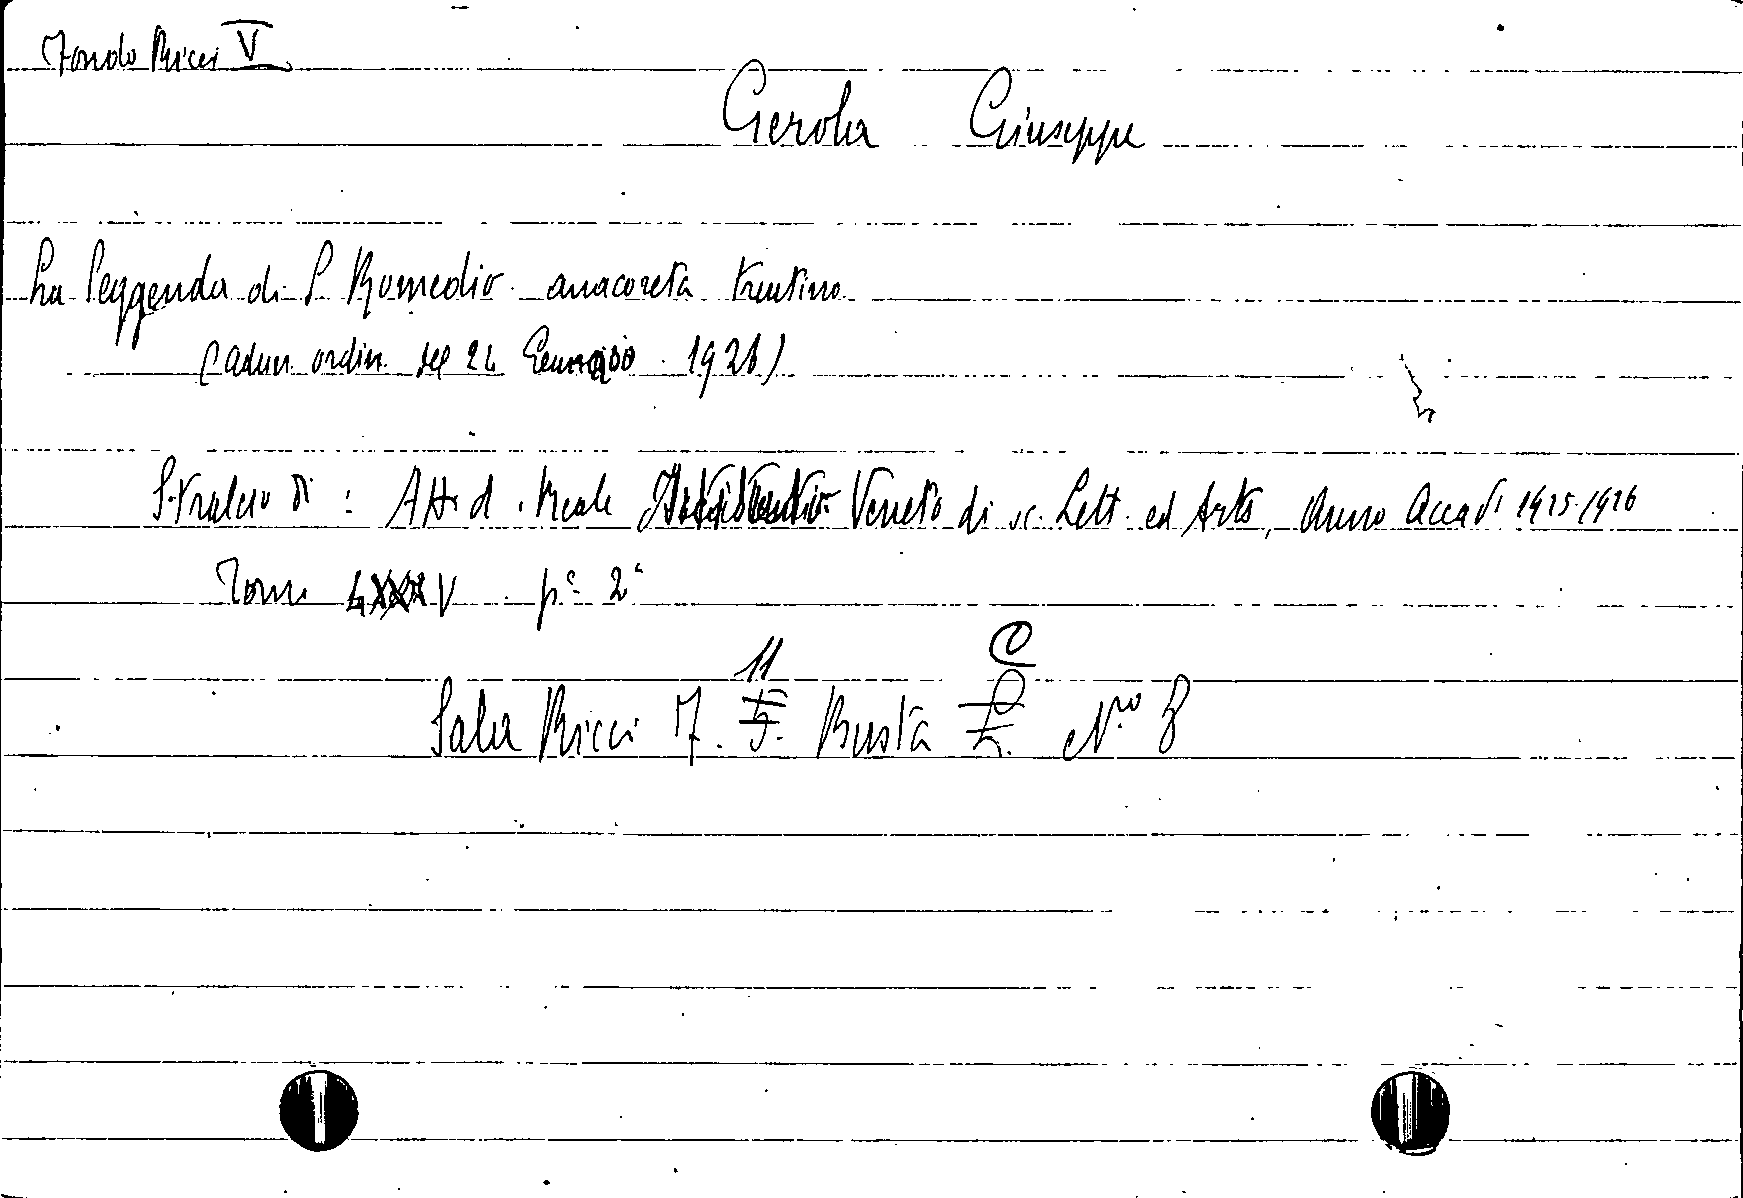 Fondo Ricci V
Gerola Giuseppe
La leggenda di S Romedio anacoreta trentino
(adun. ordin. del 24 Gennaio 1926)
Stralcio di : Atti d. Reale Istituto Veneto di sc. Lett. ed Arti, Anno Accad. 1925-1926
Tomo LXXXV pª 2ª
11 C
Sala Ricci F. Busta Nro 8